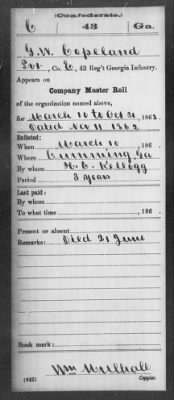 (Confederate.)
C 43 Ga.
G. W. Copeland
Pvt, Co. E, 43 Reg't Georgia Infantry.
Appears on
Company Muster Roll
of the organization named above,
for March 10 to Oct 31, 1862.
Dated Nov 11 1862
Enlisted:
When March 10, 186 .
Where Cumming, Ga
By whom H. C. Kellogg
Period 3 years
Last paid:
By whom
To what time , 186 .
Present or absent
Remarks: Died 21 June
Book mark:
Wm Mulhall
(642) Copyist.